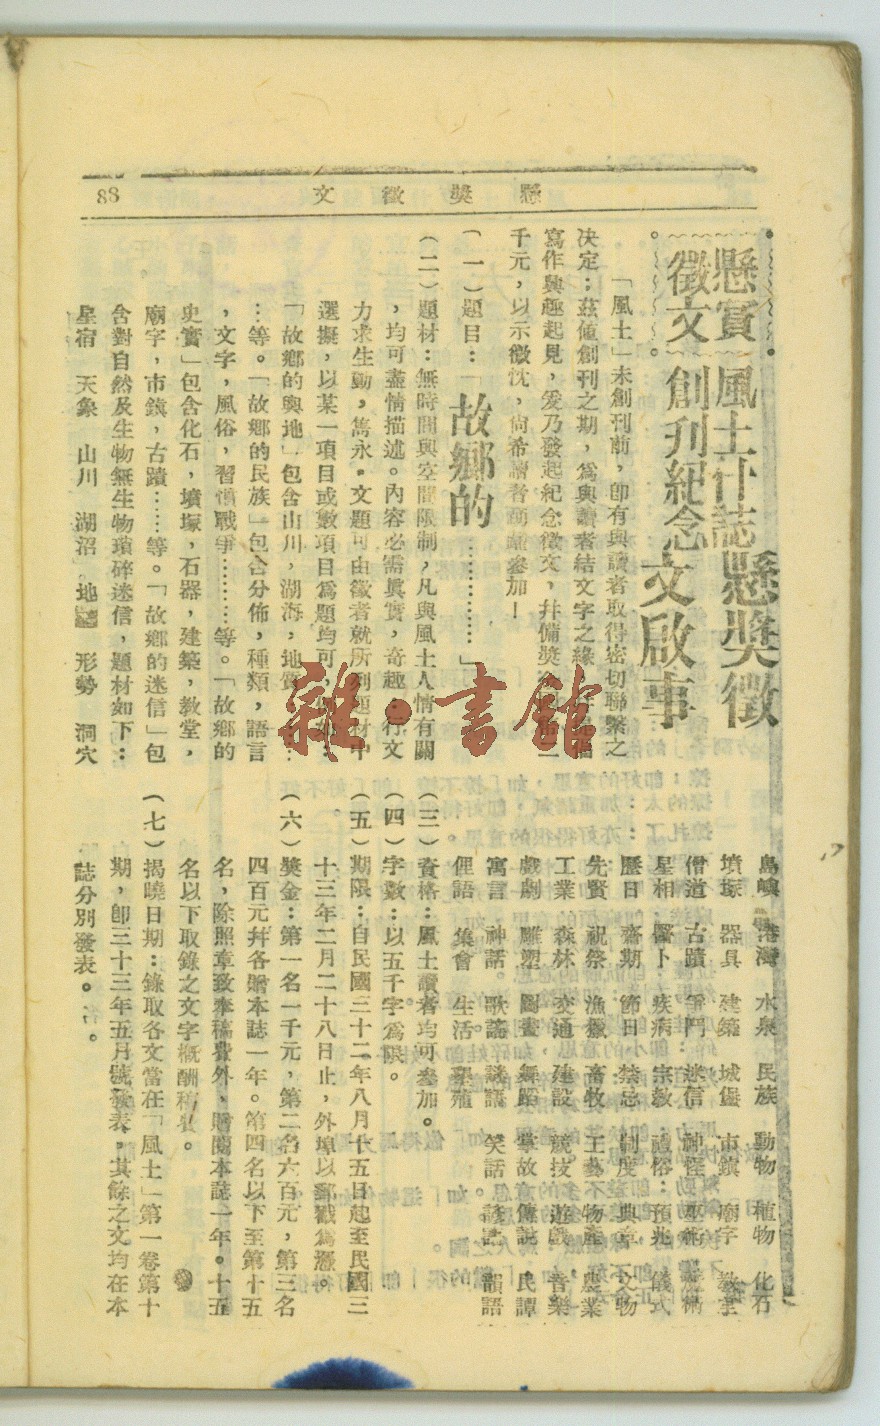 懸獎徵文
88
懸賞
徵文
風土什誌懸獎徵
創刊紀念文啟事
「風土」未創刊前，卽有與讀者取得密切聯繫之
决定：茲值創刊之期，爲與讀者結文字之緣
寫作興趣起見，爰乃發起紀念徵文，幷備獎
千元，以示徵忱，尙希讀者踴躍參加！
（一）題目：「故鄉的……………」
（二）題材：無時間與空間限制，凡與風土人情有關
，均可盡情描述。內容必需眞實，奇趣，行文
力求生動，雋永。文題可由徵者就所列題材中
選擬，以某一項目或數項目爲題均可，
「故鄉的輿地」包含山川，湖海，地質
…等。「故鄉的民族」包含分佈，種類，語言
，文字，風俗，習慣戰爭………等。「故鄉的
史實」包含化石，墳塚，石器，建築，教堂，
廟宇，市鎮，古蹟……等。「故鄉的迷信」包
含對自然及生物無生物瑣碎迷信，題材如下：
星宿 天象 山川 湖沼 地 形勢 洞穴
島嶼 港灣 水泉 民族 動物 植物 化石
墳塚 器具 建築 城堡 市鎮 廟宇 教堂
僧道 古蹟 迷信 神怪 巫術
星相 醫卜 疾病 宗教 禮俗 預兆 儀式
歷日 齋期 節日 禁忌 制度 典章 文物
先賢 祝祭 漁獵 畜牧 工藝 物產 農業
工業 森林 交通 建設 競技 遊戲 音樂
戲劇 雕塑 圖畫 舞蹈 掌故 傳說 民譚
寓言 神話 歌謠 謎語 笑話 諺語 韻語
俚語 集會 生活 墾殖
（三）資格：風土讀者均可參加。
（四）字數：以五千字爲限。
（五）期限：自民國三十二年八月十五日起至民國三
十三年二月二十八日止，外埠以郵戳爲憑。
（六）獎金：第一名一千元，第二名六百元，第三名
四百元幷各贈本誌一年。第四名以下至第十五
名，除照章致奉稿費外，贈閱本誌一年。十五
名以下取錄之文字概酬稿費。
（七）揭曉日期：錄取各文當在「風土」第一卷第十
期，卽三十三年五月號發表，其餘之文均在本
誌分別發表。
雜·書館